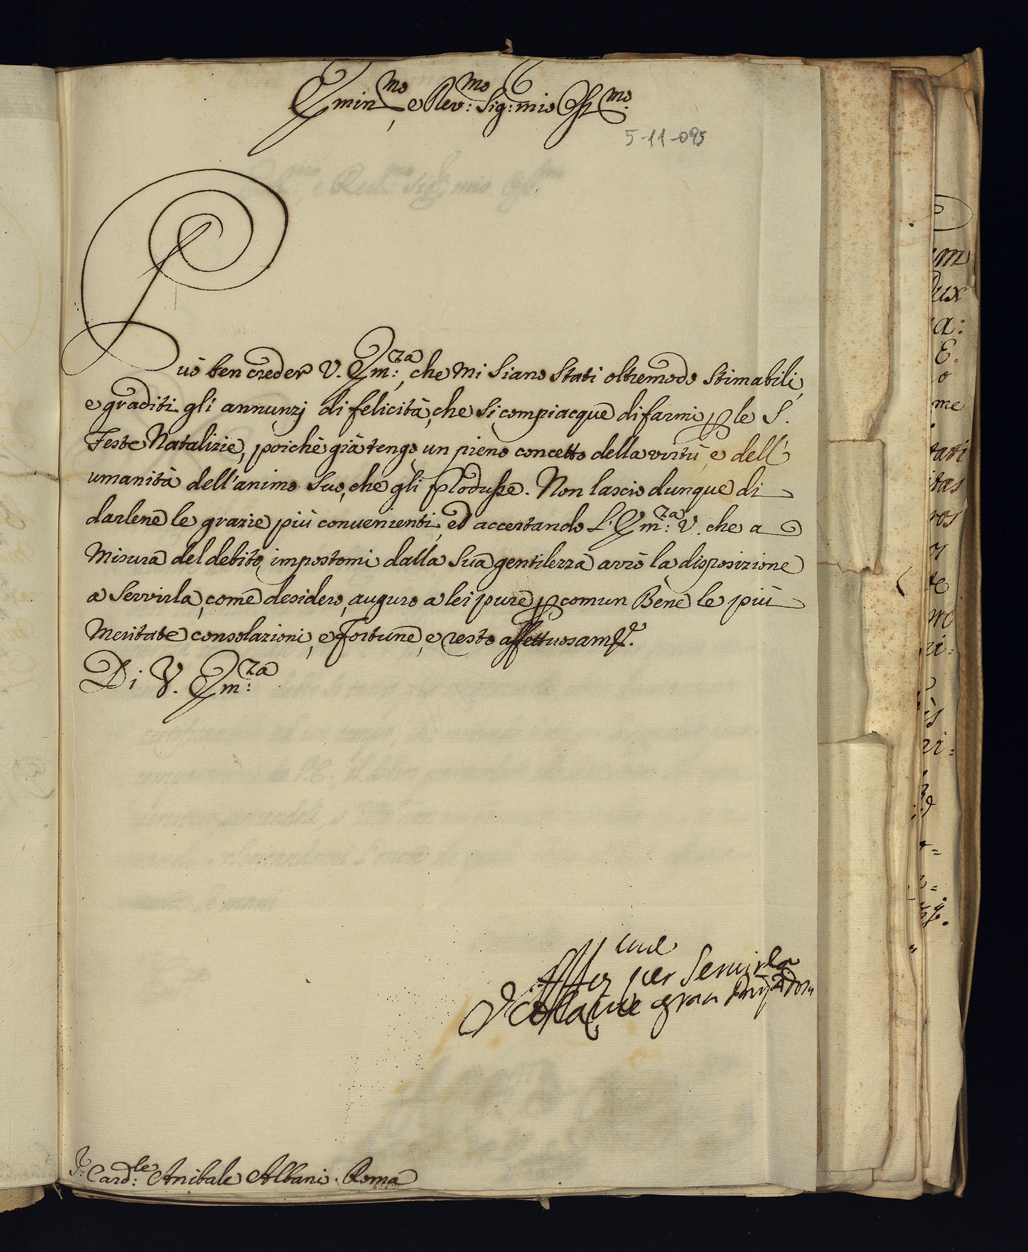 Emin.mo e Rev.mo: Sig: mio Oss.mo
5-11-095
Può ben creder V. Em:za, che mi siano stati oltremodo stimabili,
e graditi gli annunzj di felicità, che si compiacque di farmi per le S.
Feste Natalizie, poichè già tengo un pieno concetto della virtù, e dell'
umanità dell'animo Suo, che gli produsse. Non lascio dunque di
darlene le grazie più convenienti, ed accertando L'Em:za V. che a
misura del debito, impostomi dalla sua gentilezza avrò la disposizione
a servirla, come desidero, auguro a lei pure per comun Bene le più
meritate consolazioni, e fortune, e resto affettuosam.te
Di V. Em:za
Aff.mo per servirla
gran
S.r Card:le Anibale Albani. Roma